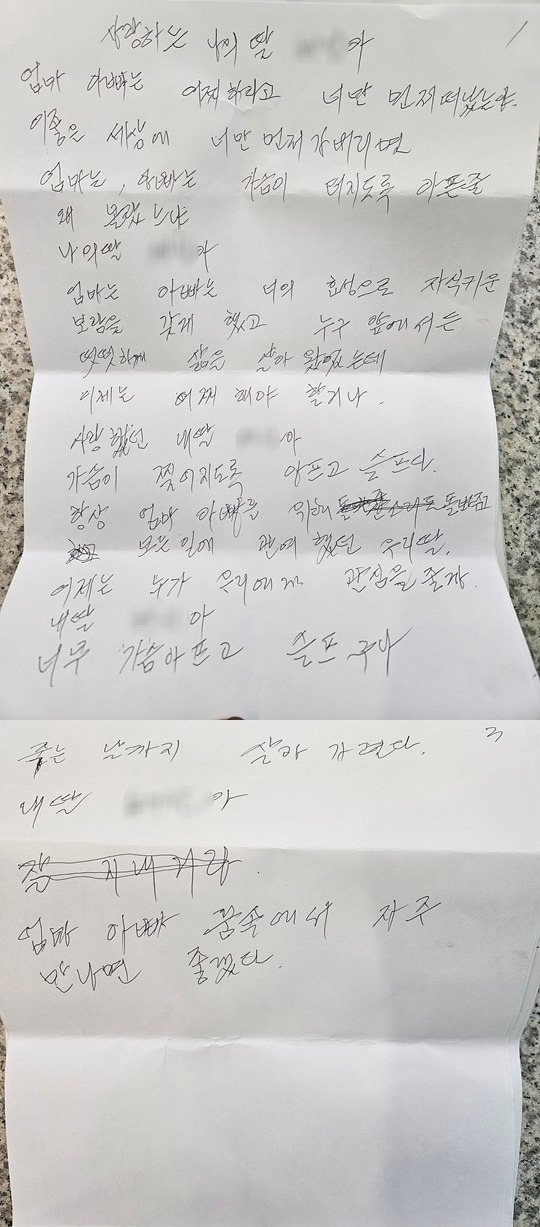 1
사랑하는 나의 딸 아
엄마 아빠는 어찌하라고 너만 먼저 떠났느냐.
이좋은 세상에 너만 먼저 가버리면
엄마는, 아빠는 가슴이 터지도록 아픈줄
왜 몰랐느냐
나의딸 아
엄마는 아빠는 너의 효성으로 자식키운
보람을 갖게 했고 누구 앞에서는
떳떳하게 삶을 살아 왔었는데
이제는 어찌 해야 할거나.
사랑했던 내딸 아
가슴이 찢어지도록 아프고 슬프다.
항상 엄마 아빠를 위해 돌봐주고
모든일에 반여 했던 우리딸,
이제는 누가 우리에게 관심을 줄까.
내딸 아
너무 가슴아프고 슬프구나
3
죽는 날까지 살아 가련다.
내딸 아
잘 지내거라.
엄마 아빠 꿈속에서 자주
만나면 좋겠다.